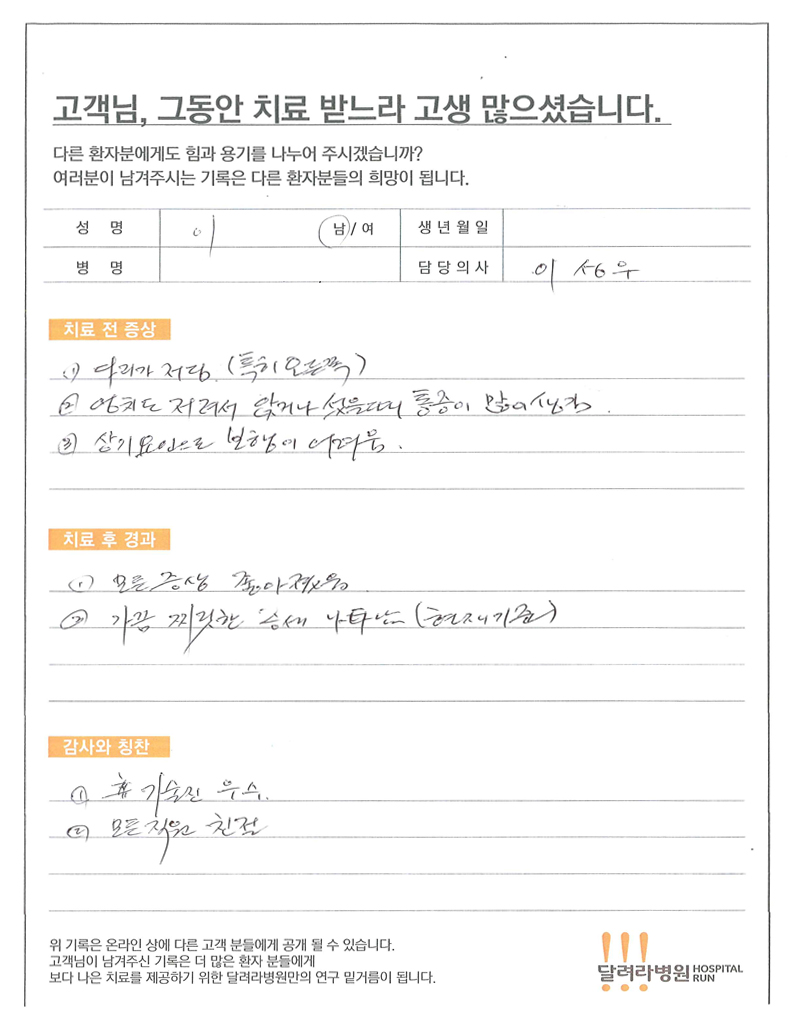 고객님, 그동안 치료 받느라 고생 많으셨습니다.
다른 환자분에게도 힘과 용기를 나누어 주시겠습니까?
여러분이 남겨주시는 기록은 다른 환자분들의 희망이 됩니다.
성 명 이 남/여 생년월일
병 명 담당의사 이성우
치료 전 증상
① 다리가 저림 (특히 오른쪽)
② 앉거나 통증이 많이 생김.
③ 상기요인으로 보행이 어려움.
치료 후 경과
① 모든 증상 좋아졌음.
② 가끔 찌릿한 증세 나타남 (현재기준)
감사와 칭찬
① 기술진 우수.
② 모든직원 친절
위 기록은 온라인 상에 다른 고객 분들에게 공개 될 수 있습니다.
고객님이 남겨주신 기록은 더 많은 환자 분들에게
보다 나은 치료를 제공하기 위한 달려라병원만의 연구 밑거름이 됩니다.
달려라병원 HOSPITAL RUN